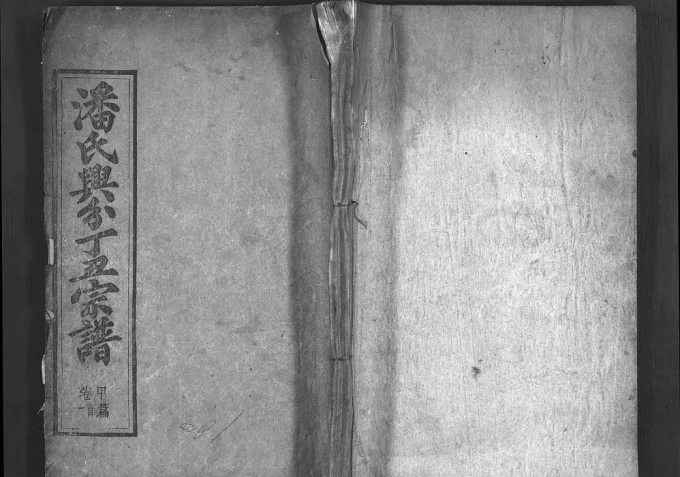 潘氏興分丁丑宗譜
甲篇
卷首